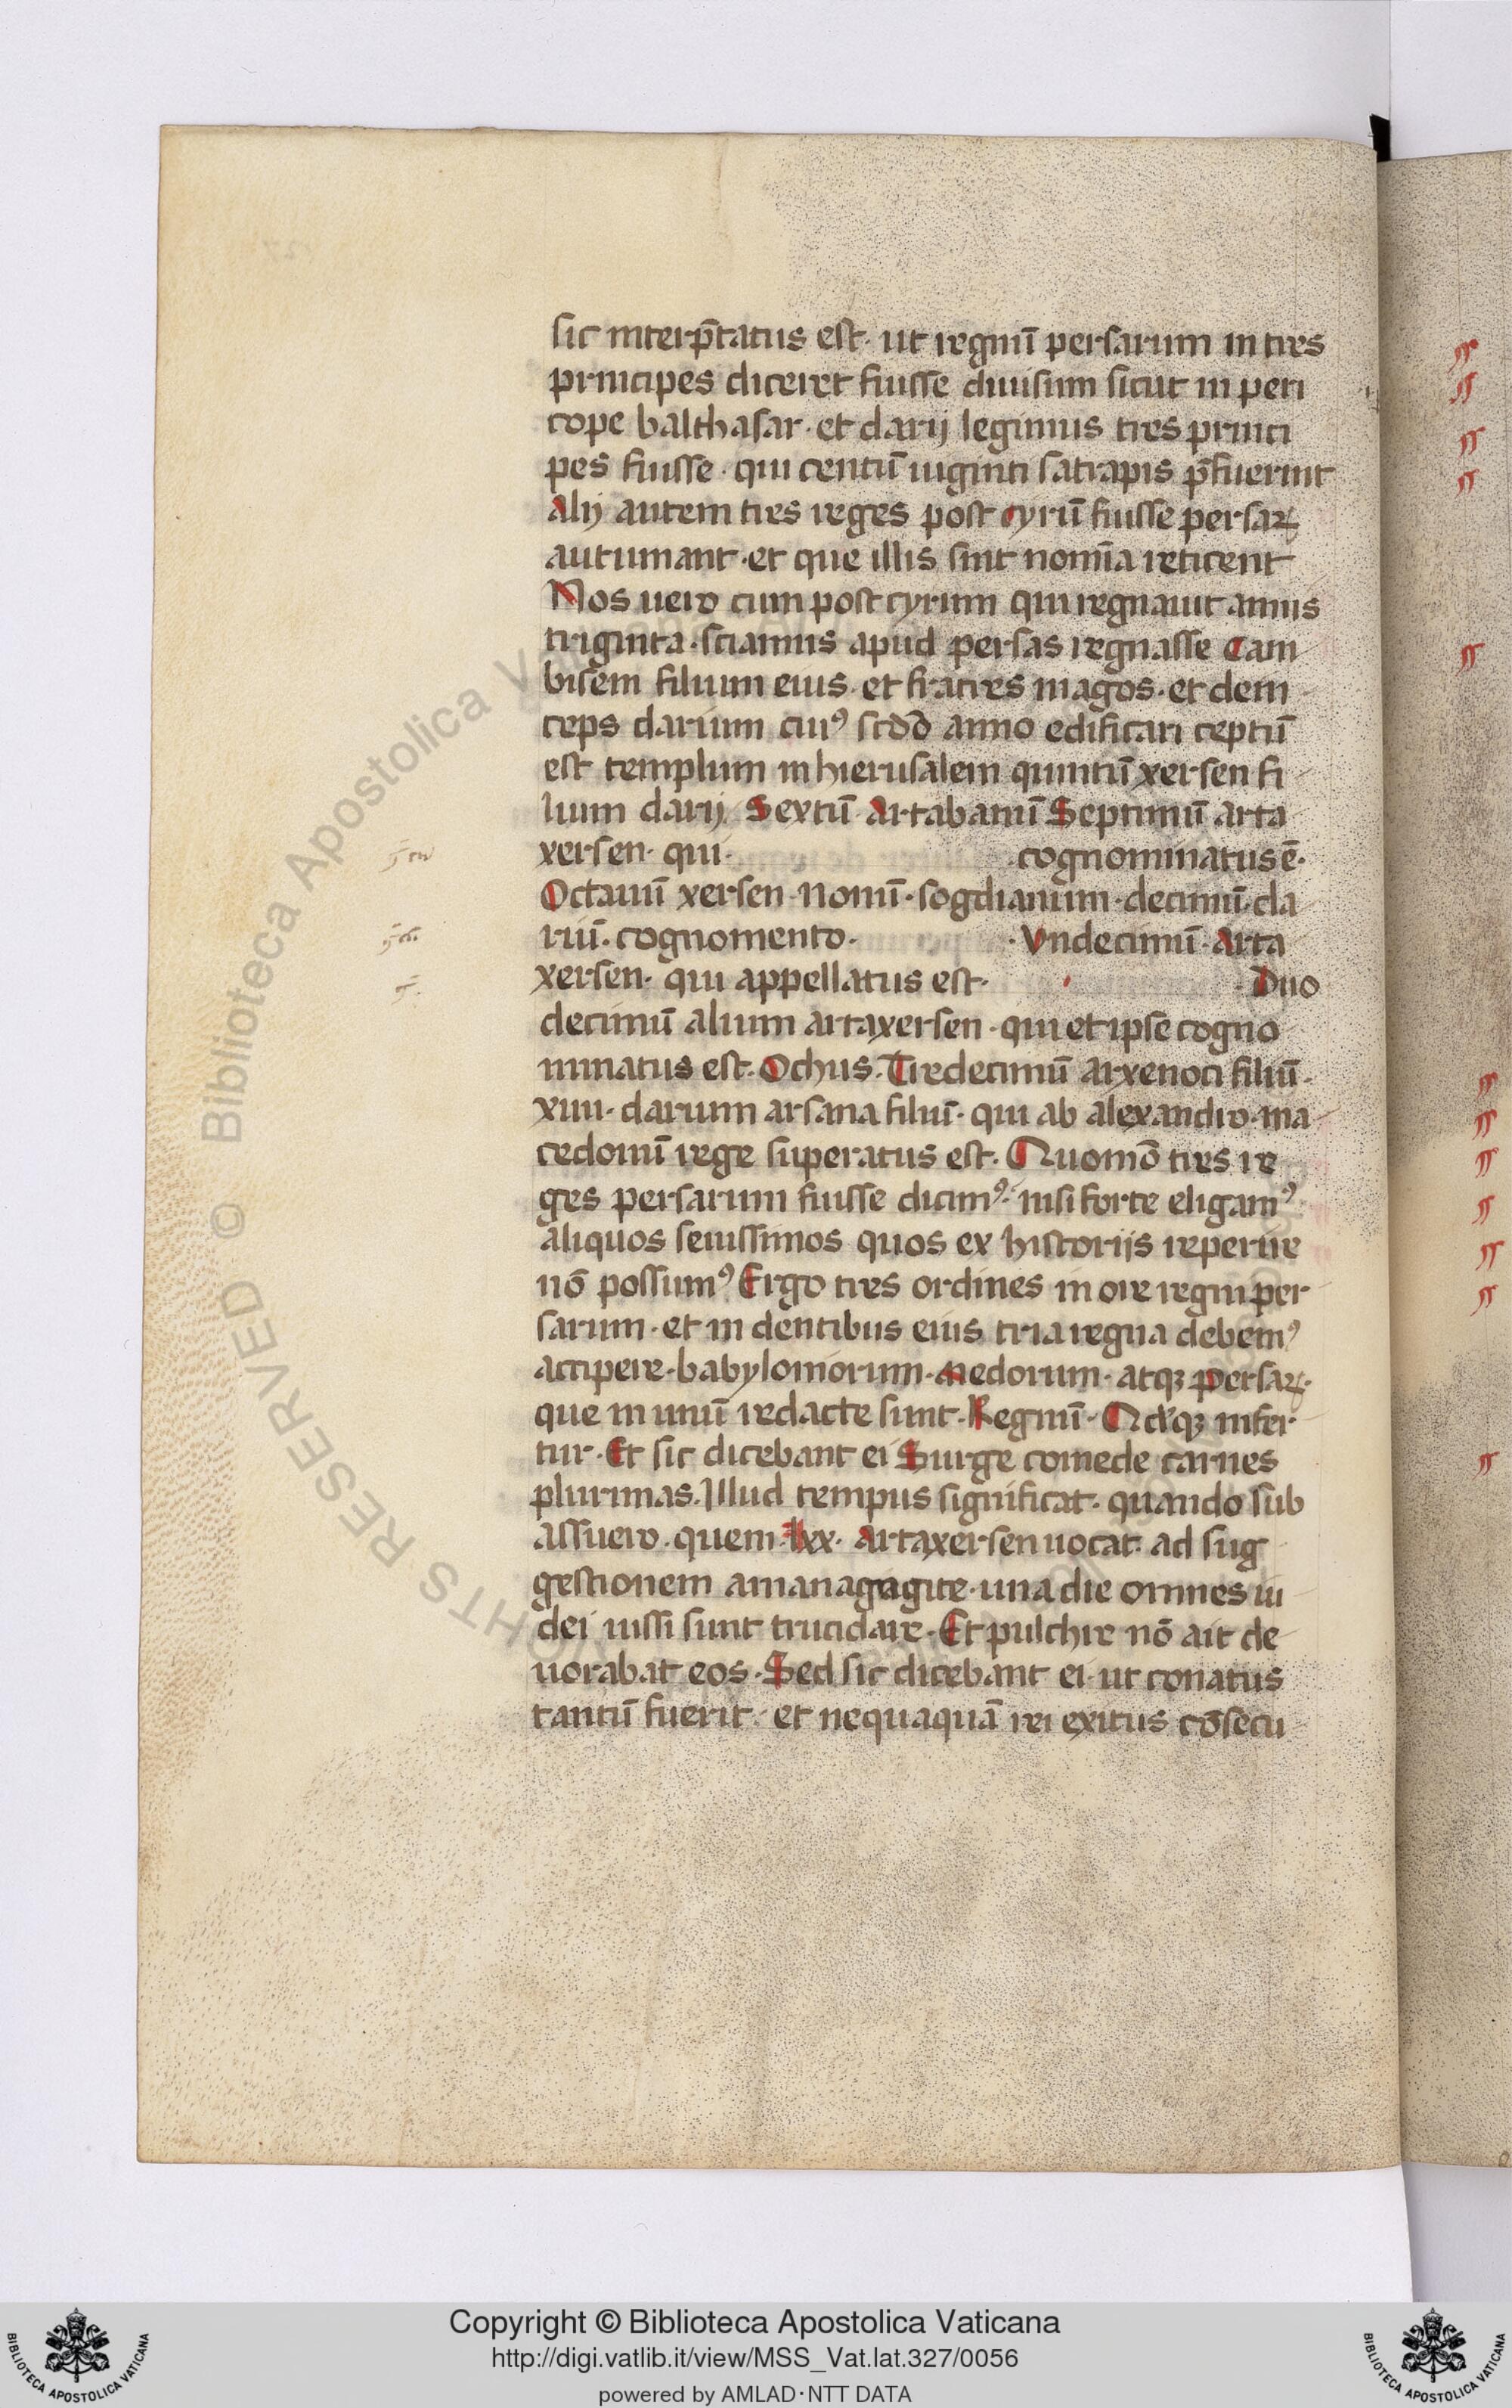 sic interp̄tatus est · ut regnū persarum in tres
principes diceret fuisse diuisum sicut in peri
cope balthasar · et darij legimus tres princi
pes fuisse · qui centū uiginti satrapis p̄fuerint
Alij autem tres reges post cyrū fuisse persaꝝ
autumant · et que illis sint nomīa reticent
Nos uero cum post cyrum qui regnauit annis
triginta · sciamus apud persas regnasse Cam
bisem filium eius · et fratres magos · et dein
ceps darium cuiꝰ scd̄o anno edificari ceptū
est templum in hierusalem quintū xersen fi
lium darij Sextū Artabanū Septimū arta
xersen · qui · cognominatus ē ·
Octauū xersen · nonū · sogdianum · decimū · da
riū · cognomento · Vndecimū · Arta
xersen · qui appellatus est · Duo
decimū alium artaxersen · qui et ipse cogno
minatus est · Ochus · Tredecimū arxenoci filiū ·
xiiii · darium arsana filiū · qui ab alexandro · ma
cedonū rege superatus est · Quomō tres re
ges persarum fuisse dicimꝰ · nisi forte eligamꝰ
aliquos seuissimos quos ex historijs reperire
nō possumꝰ Ergo tres ordines in ore regni per
sarum · et in dentibus eius tria regna debemꝰ
accipere · babylomorum · medorum · atqꝫ persaꝝ ·
que in unū redacte sunt · Regnū · infer
tur · Et sic dicebant ei Surge comede carnes
plurimas · Illud tempus significat · quando sub
assuero · quem · lxx · Artaxersen uocat · ad sug
gestionem aman agagite · una die omnes iu
dei iussi sunt trucidare · Et pulchre nō ait de
uorabat eos · Sed sic dicebant ei · ut conatus
tantū fuerit · et nequaquā rei exitus cōsecu
© Biblioteca Apostolica Vaticana
Copyright © Biblioteca Apostolica Vaticana
http://digi.vatlib.it/view/MSS_Vat.lat.327/0056
powered by AMLAD·NTT DATA
BIBLIOTECA APOSTOLICA VATICANA
BIBLIOTECA APOSTOLICA VATICANA